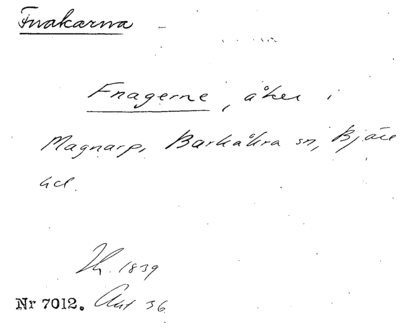 Fnakarna
Fnagerne, åker i
Magnarp, Barkåkra sn, Bjäre
hd.
1839
Nr 7012. Akt 36